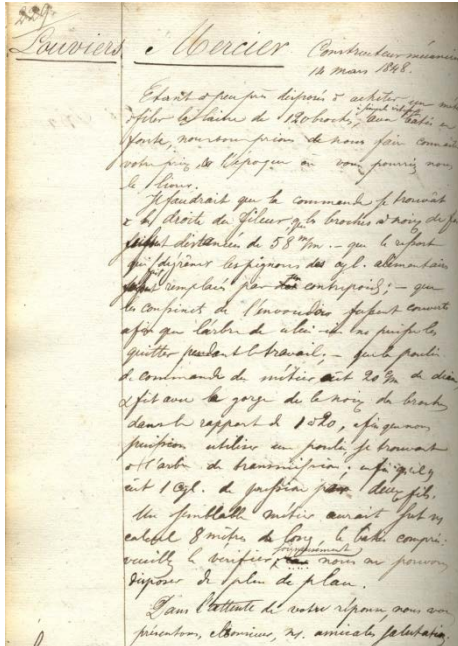 229
Louviers Mercier Constructeur mécanicien
14 mars 1848.
Etant à peu près disposés à acheter un métier
à filer la laine de 120 broches, à simple avec bâti en
fonte, nous vous prions de nous faire connaître
votre prix, & l'époque où vous pourriez nous
le livrer.
Il faudrait que la commande se trouvât
à la droite du fileur, que les broches à noix de fer
fussent distancées de 58 m/m. – que le ressort
qui fait désengrener les pignons des cyl. alimentaires
fût remplacé par contrepoids; – que
les coussinets de l'envoudoir fussent couverts
afin que l'arbre de celui-ci ne puisse les
quitter pendant le travail; – que la poulie
de commande du métier eût 20 c/m de diam
& fût avec la gorge de la noix de broche
dans le rapport de 1 à 20, afin que nous
puissions utiliser une poulie se trouvant
à l'arbre de transmission, afin qu'il y
eût 1 cyl. de pression par deux fils.
Un semblable métier aurait suivt n/
calcul 8 mètres de long, le bâti compris
veuillez le vérifier, nous ne pouvons
disposer de plus de place.
Dans l'attente de votre réponse, nous vous
présentons, Monsieur, ns. amicales salutations.